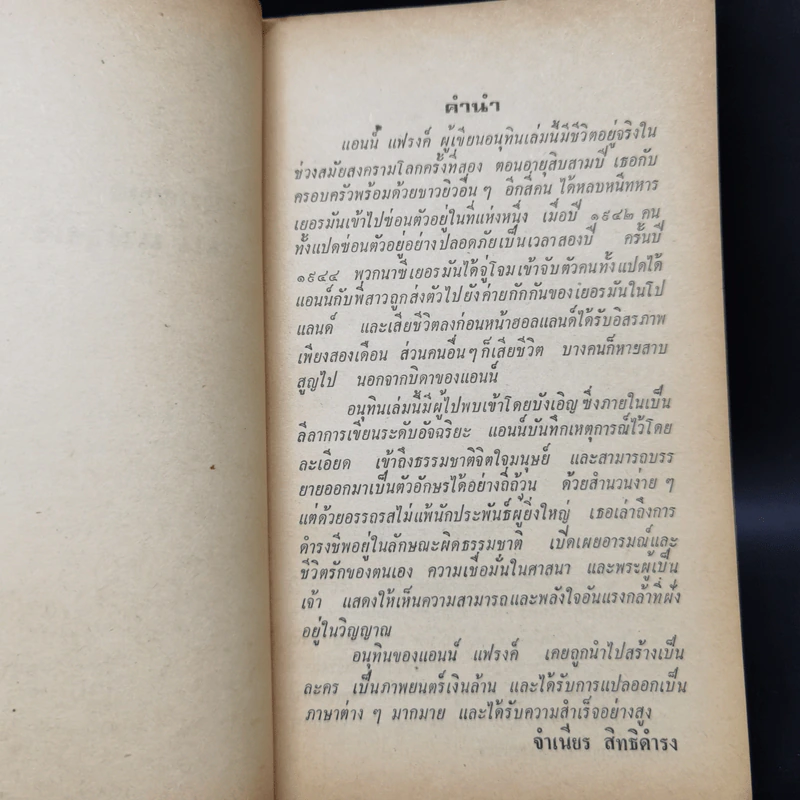 คำนำ
แอนน์ แฟรงค์ ผู้เขียนอนุทินเล่มนี้มีชีวิตอยู่จริงใน
ช่วงสมัยสงครามโลกครั้งที่สอง ตอนอายุสิบสามปี เธอกับ
ครอบครัวพร้อมด้วยชาวยิวอื่น ๆ อีกสี่คน ได้หลบหนีทหาร
เยอรมันเข้าไปซ่อนตัวอยู่ในที่แห่งหนึ่ง เมื่อปี ๑๙๔๒ คน
ทั้งแปดซ่อนตัวอยู่อย่างปลอดภัยเป็นเวลาสองปี ครั้นปี
๑๙๔๔ พวกนาซีเยอรมันได้จู่โจมเข้าจับตัวคนทั้งแปดได้
แอนน์กับพี่สาวถูกส่งตัวไปยังค่ายกักกันของเยอรมันในโป
แลนด์ และเสียชีวิตลงก่อนหน้าฮอลแลนด์ได้รับอิสรภาพ
เพียงสองเดือน ส่วนคนอื่น ๆ ก็เสียชีวิต บางคนก็หายสาบ
สูญไป นอกจากบิดาของแอนน์
อนุทินเล่มนี้มีผู้ไปพบเข้าโดยบังเอิญ ซึ่งภายในเป็น
ลีลาการเขียนระดับอัจฉริยะ แอนน์บันทึกเหตุการณ์ไว้โดย
ละเอียด เข้าถึงธรรมชาติจิตใจมนุษย์ และสามารถบรร
ยายออกมาเป็นตัวอักษรได้อย่างถี่ถ้วน ด้วยสำนวนง่าย ๆ
แต่ด้วยอรรถรสไม่แพ้นักประพันธ์ผู้ยิ่งใหญ่ เธอเล่าถึงการ
ดำรงชีพอยู่ในลักษณะผิดธรรมชาติ เปิดเผยอารมณ์และ
ชีวิตรักของตนเอง ความเชื่อมั่นในศาสนา และพระผู้เป็น
เจ้า แสดงให้เห็นความสามารถและพลังใจอันแรงกล้าที่ฝัง
อยู่ในวิญญาณ
อนุทินของแอนน์ แฟรงค์ เคยถูกนำไปสร้างเป็น
ละคร เป็นภาพยนตร์เงินล้าน และได้รับการแปลออกเป็น
ภาษาต่าง ๆ มากมาย และได้รับความสำเร็จอย่างสูง
จำเนียร สิทธิดำรง